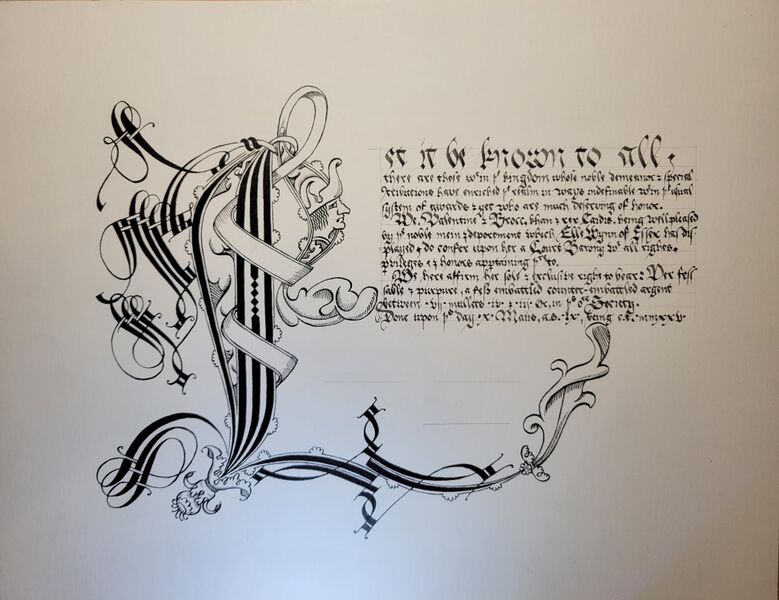 Let it be known to all.
there are those w'in yᵉ kingdom whose noble demeanor & special
attributions have enriched yᵉ realm in ways indefinable w'in yᵉ usual
system of awards & yet who are much deserving of honor.
We, Valentine & Brocc, khan & rex Caidis, being well pleased
by yᵉ noble mein & deportment which Elle Wynn of Essex has dis-
played, do confer upon her a Court Barony wᵗ all rights,
privleges & honors appertaining yʳto.
We here affirm her sole & exclusive right to bear: Per fess
sable & purpure, a fess embattled counter-embattled argent
between vii mullets iv & iii Or, in yᵉ Society.
Done upon yᵉ day x Maiis, a.s. lx, being c.e. mmxxv.